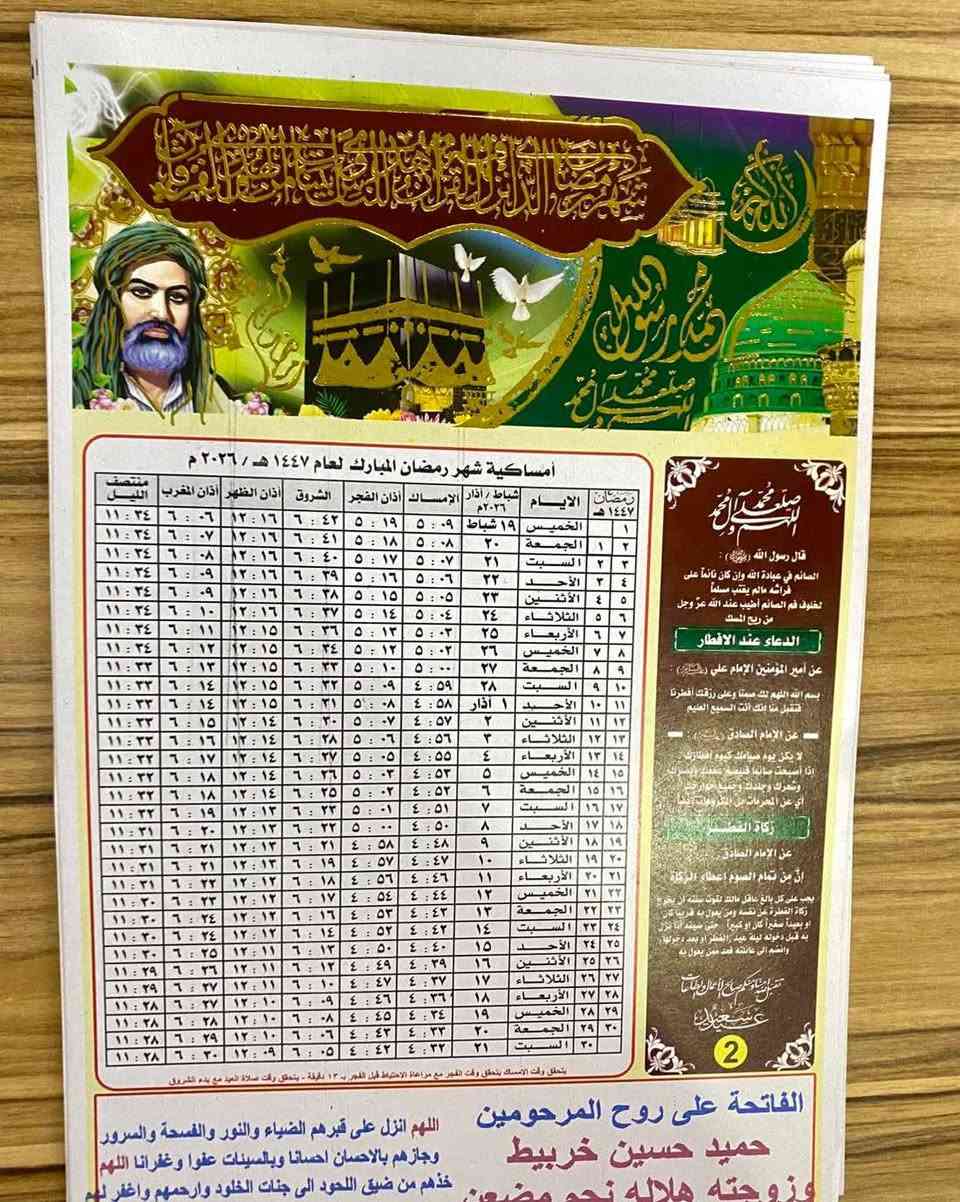 شهر رمضان الذي أنزل فيه القرآن هدى للناس وبينات من الهدى والفرقان
الله
محمد رسول الله
اللهم صل على محمد وآل محمد
أمساكية شهر رمضان المبارك لعام ١٤٤٧ هـ / ٢٠٢٦ م
رمضان ١٤٤٧ هـ الايام شباط / آذار ٢٠٢٦م الإمساك أذان الفجر الشروق أذان الظهر أذان المغرب منتصف الليل
١ الخميس ١٩ شباط ٥ : ٠٩ ٥ : ١٩ ٦ : ٤٢ ١٢ : ١٦ ٦ : ٠٦ ١١ : ٣٤
٢ ١ الجمعة ٢٠ ٥ : ٠٨ ٥ : ١٨ ٦ : ٤١ ١٢ : ١٦ ٦ : ٠٧ ١١ : ٣٤
٣ ٢ السبت ٢١ ٥ : ٠٧ ٥ : ١٧ ٦ : ٤٠ ١٢ : ١٦ ٦ : ٠٨ ١١ : ٣٤
٤ ٣ الأحد ٢٢ ٥ : ٠٦ ٥ : ١٦ ٦ : ٣٩ ١٢ : ١٦ ٦ : ٠٩ ١١ : ٣٤
٥ ٤ الأثنين ٢٣ ٥ : ٠٥ ٥ : ١٥ ٦ : ٣٨ ١٢ : ١٦ ٦ : ٠٩ ١١ : ٣٤
٦ ٥ الثلاثاء ٢٤ ٥ : ٠٤ ٥ : ١٤ ٦ : ٣٧ ١٢ : ١٥ ٦ : ١٠ ١١ : ٣٤
٧ ٦ الأربعاء ٢٥ ٥ : ٠٣ ٥ : ١٣ ٦ : ٣٦ ١٢ : ١٥ ٦ : ١١ ١١ : ٣٤
٨ ٧ الخميس ٢٦ ٥ : ٠٢ ٥ : ١٢ ٦ : ٣٤ ١٢ : ١٥ ٦ : ١٢ ١١ : ٣٤
٩ ٨ الجمعة ٢٧ ٥ : ٠٠ ٥ : ١٠ ٦ : ٣٣ ١٢ : ١٥ ٦ : ١٣ ١١ : ٣٣
١٠ ٩ السبت ٢٨ ٤ : ٥٩ ٥ : ٠٩ ٦ : ٣٢ ١٢ : ١٥ ٦ : ١٤ ١١ : ٣٣
١١ ١٠ الأحد ١ آذار ٤ : ٥٨ ٥ : ٠٨ ٦ : ٣١ ١٢ : ١٥ ٦ : ١٤ ١١ : ٣٣
١٢ ١١ الأثنين ٢ ٤ : ٥٧ ٥ : ٠٧ ٦ : ٣٠ ١٢ : ١٤ ٦ : ١٥ ١١ : ٣٣
١٣ ١٢ الثلاثاء ٣ ٤ : ٥٦ ٥ : ٠٦ ٦ : ٢٨ ١٢ : ١٤ ٦ : ١٦ ١١ : ٣٣
١٤ ١٣ الأربعاء ٤ ٤ : ٥٥ ٥ : ٠٥ ٦ : ٢٧ ١٢ : ١٤ ٦ : ١٧ ١١ : ٣٣
١٥ ١٤ الخميس ٥ ٤ : ٥٣ ٥ : ٠٣ ٦ : ٢٦ ١٢ : ١٤ ٦ : ١٨ ١١ : ٣٢
١٦ ١٥ الجمعة ٦ ٤ : ٥٢ ٥ : ٠٢ ٦ : ٢٥ ١٢ : ١٤ ٦ : ١٨ ١١ : ٣٢
١٧ ١٦ السبت ٧ ٤ : ٥١ ٥ : ٠١ ٦ : ٢٣ ١٢ : ١٣ ٦ : ١٩ ١١ : ٣٢
١٨ ١٧ الأحد ٨ ٤ : ٥٠ ٥ : ٠٠ ٦ : ٢٢ ١٢ : ١٣ ٦ : ٢٠ ١١ : ٣١
١٩ ١٨ الأثنين ٩ ٤ : ٤٨ ٤ : ٥٨ ٦ : ٢١ ١٢ : ١٣ ٦ : ٢١ ١١ : ٣١
٢٠ ١٩ الثلاثاء ١٠ ٤ : ٤٧ ٤ : ٥٧ ٦ : ١٩ ١٢ : ١٣ ٦ : ٢١ ١١ : ٣١
٢١ ٢٠ الأربعاء ١١ ٤ : ٤٦ ٤ : ٥٦ ٦ : ١٨ ١٢ : ١٢ ٦ : ٢٢ ١١ : ٣١
٢٢ ٢١ الخميس ١٢ ٤ : ٤٤ ٤ : ٥٤ ٦ : ١٧ ١٢ : ١٢ ٦ : ٢٣ ١١ : ٣٠
٢٣ ٢٢ الجمعة ١٣ ٤ : ٤٣ ٤ : ٥٣ ٦ : ١٦ ١٢ : ١٢ ٦ : ٢٤ ١١ : ٣٠
٢٤ ٢٣ السبت ١٤ ٤ : ٤٢ ٤ : ٥٢ ٦ : ١٤ ١٢ : ١٢ ٦ : ٢٤ ١١ : ٣٠
٢٥ ٢٤ الأحد ١٥ ٤ : ٤٠ ٤ : ٥٠ ٦ : ١٣ ١٢ : ١١ ٦ : ٢٥ ١١ : ٣٠
٢٦ ٢٥ الأثنين ١٦ ٤ : ٣٩ ٤ : ٤٩ ٦ : ١٢ ١٢ : ١١ ٦ : ٢٦ ١١ : ٢٩
٢٧ ٢٦ الثلاثاء ١٧ ٤ : ٣٧ ٤ : ٤٧ ٦ : ١٠ ١٢ : ١١ ٦ : ٢٧ ١١ : ٢٩
٢٨ ٢٧ الأربعاء ١٨ ٤ : ٣٦ ٤ : ٤٦ ٦ : ٠٩ ١٢ : ١٠ ٦ : ٢٧ ١١ : ٢٨
٢٩ ٢٨ الخميس ١٩ ٤ : ٣٤ ٤ : ٤٥ ٦ : ٠٨ ١٢ : ١٠ ٦ : ٢٨ ١١ : ٢٨
٣٠ ٢٩ الجمعة ٢٠ ٤ : ٣٣ ٤ : ٤٣ ٦ : ٠٦ ١٢ : ١٠ ٦ : ٢٩ ١١ : ٢٨
٣٠ السبت ٢١ ٤ : ٣٢ ٤ : ٤٢ ٦ : ٠٥ ١٢ : ٠٩ ٦ : ٣٠ ١١ : ٢٨
يتحقق وقت الامساك بتحقق وقت الفجر مع مراعاة الاحتياط قبل الفجر بـ ١٣ دقيقة - يتحقق وقت صلاة العيد مع بدء الشروق
اللهم صل على محمد وآل محمد
قال رسول الله :
الصائم في عبادة الله وإن كان نائماً على
فراشه مالم يغتب مسلماً
لخلوف فم الصائم أطيب عند الله عز وجل
من ريح المسك
الدعاء عند الافطار
عن أمير المؤمنين الإمام علي :
بسم الله اللهم لك صمنا وعلى رزقك أفطرنا
فتقبل منا انك أنت السميع العليم
عن الإمام الصادق :
لا يكن يوم صيامك كيوم افطارك
اذا أصبحت صائما فليصم سمعك وبصرك
وشعرك وجلدك وجميع جوارحك
أي عن المحرمات
زكاة الفطر
عن الإمام الصادق :
إنّ من تمام الصوم اعطاء الزكاة
يجب على كل بالغ عاقل مالك لقوت سنته أن يخرج
زكاة الفطرة عن نفسه ومن يعول به قريبا كان
أو بعيدا صغيراً كان أو كبيراً حتى
به قبل دخوله ليلة عيد الفطر أو بعد دخولها
وانضم الى عائلته فعد ممن يعول به
عيد سعيد
2
الفاتحة على روح المرحومين
حميد حسين خريبط
وزوجته هلاله نجم مضعن
اللهم انزل على قبرهم الضياء والنور والفسحة والسرور
وجازهم بالاحسان احسانا وبالسيئات عفوا وغفرانا اللهم
خذهم من ضيق اللحود الى جنات الخلود وارحمهم واغفر لهم